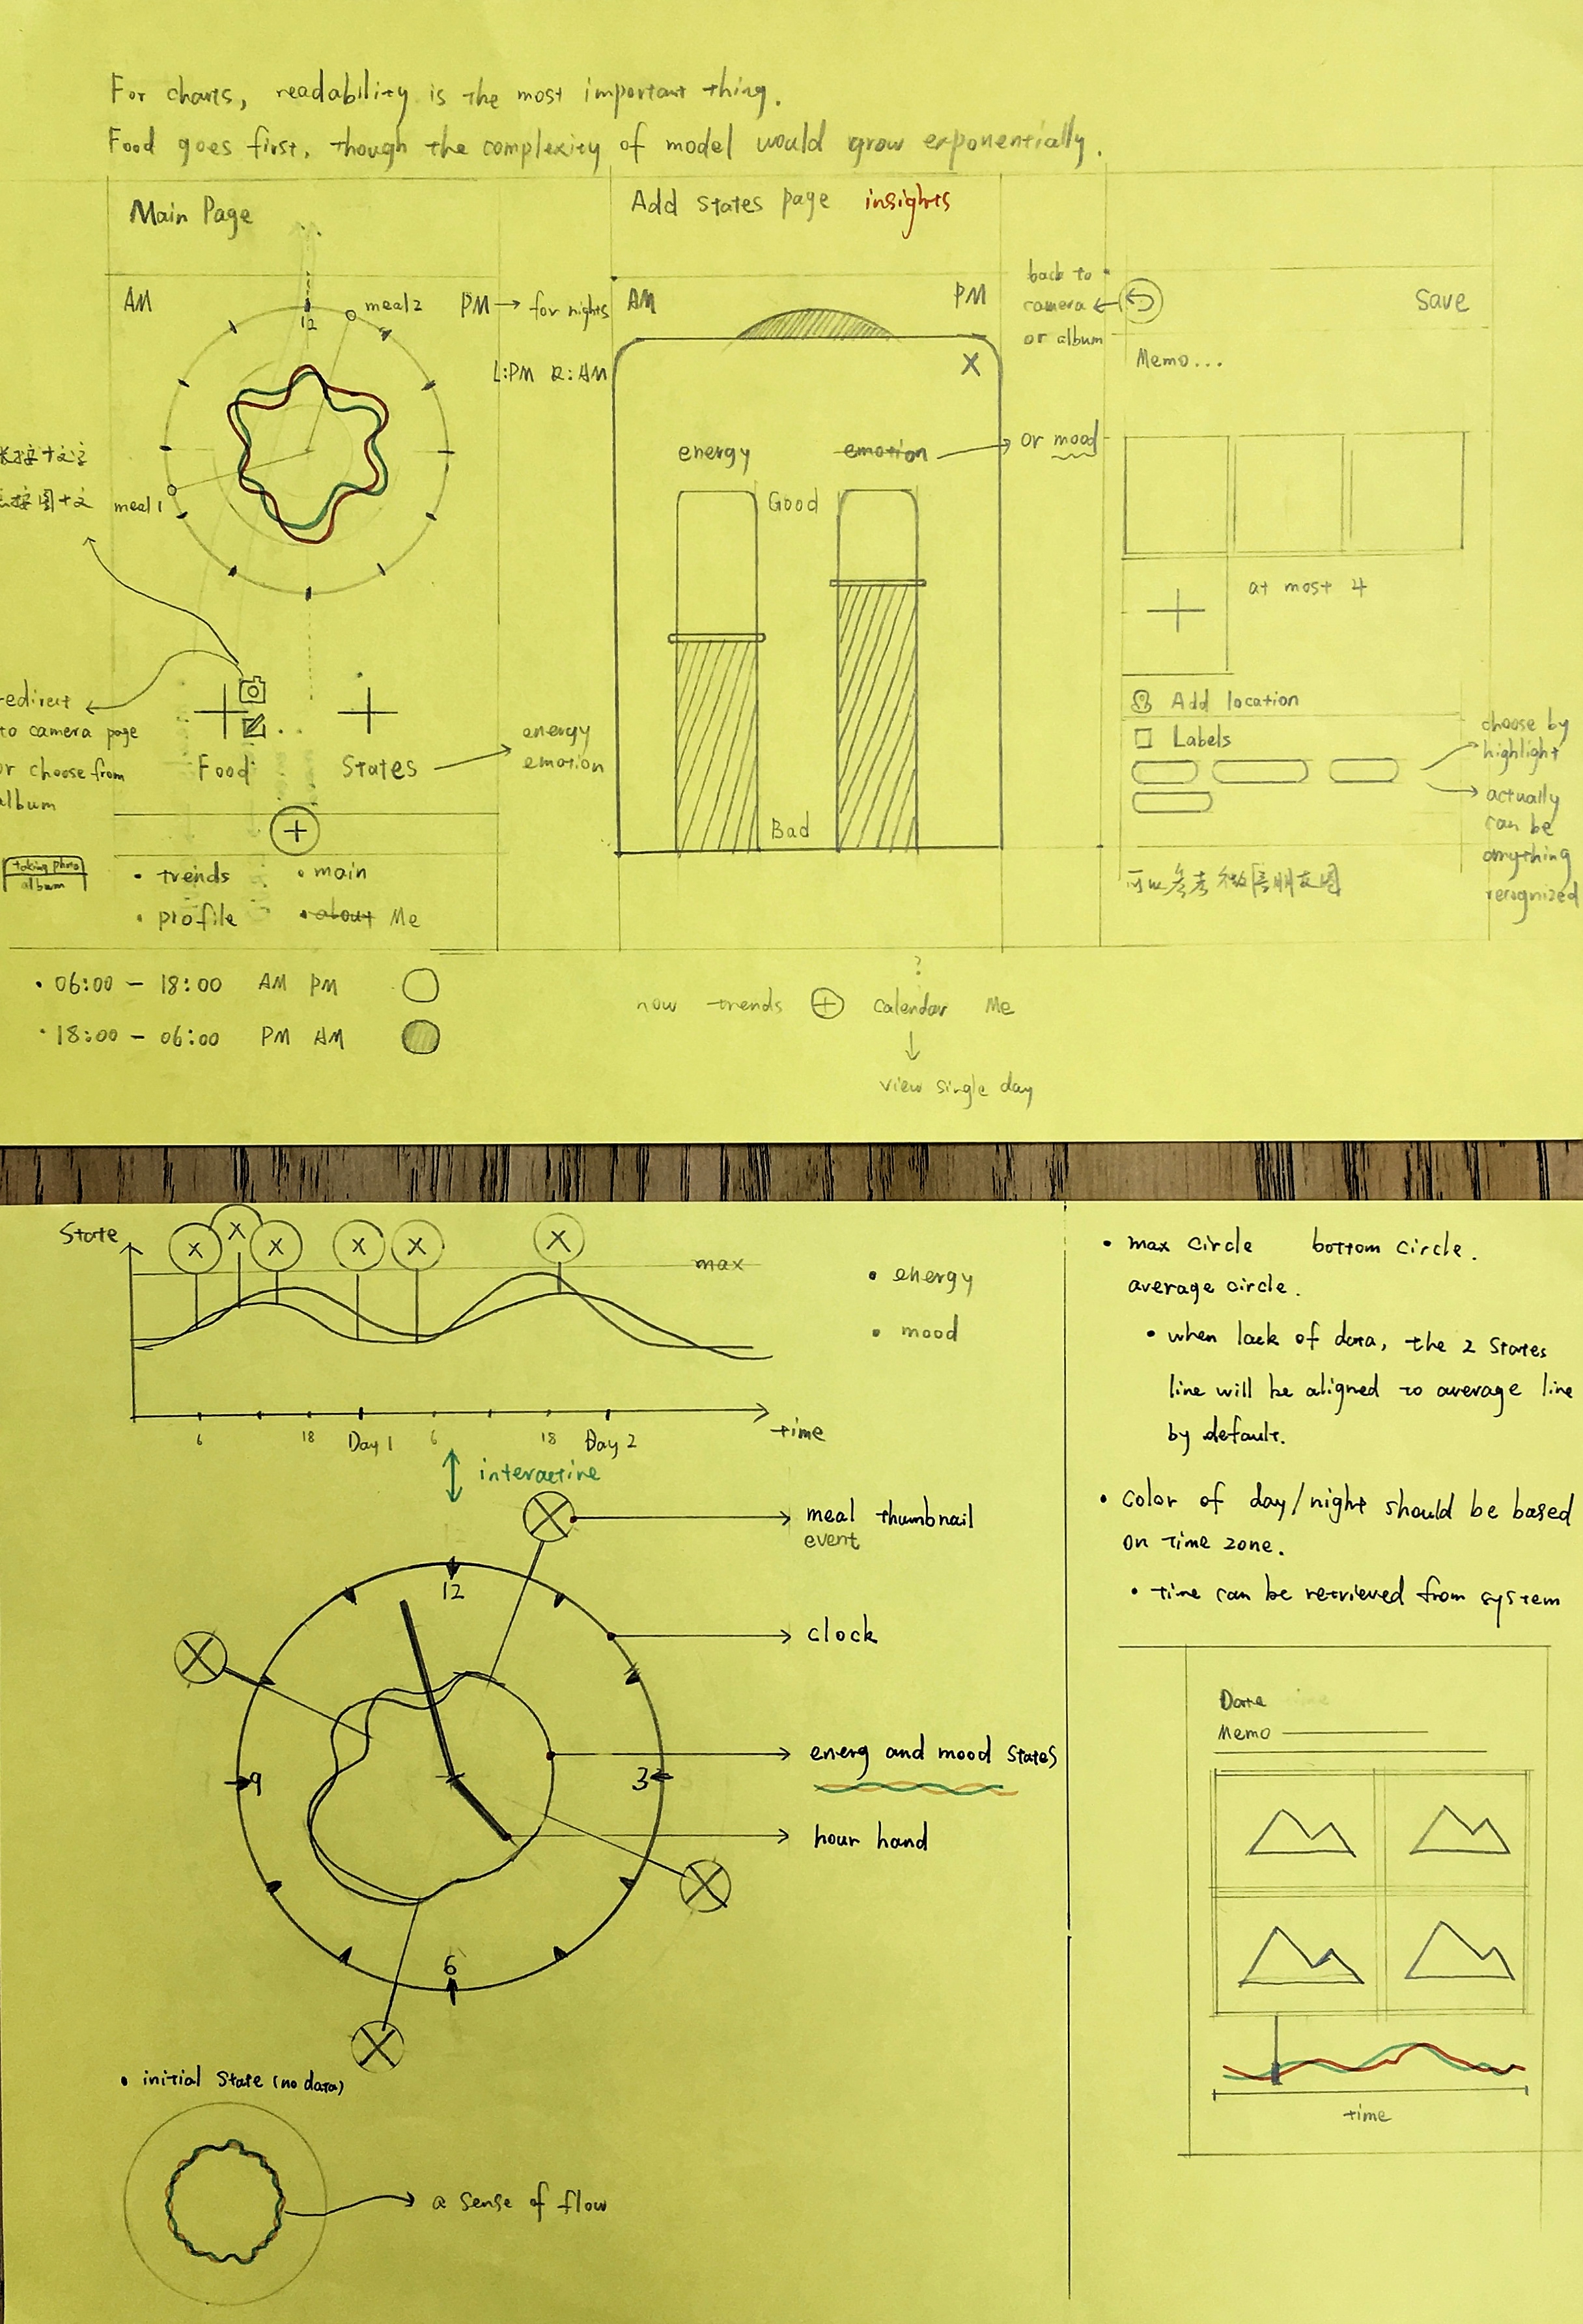 For charts, readability is the most important thing.
Food goes first, though the complexity of model would grow exponentially.
Main Page
AM
PM → for nights
L:PM R:AM
12
meal 2
meal 1
图+文
redirect
to camera page
or choose from
album
Food
States
energy
emotion
taking photo
album
• trends
• main
• profile
• about Me
• 06:00 – 18:00 AM PM
• 18:00 – 06:00 PM AM
Add states page insights
AM
PM
X
energy
emotion
or mood
Good
Bad
back to
camera
or album
Save
Memo...
at most 4
Add location
Labels
choose by
highlight
actually
can be
anything
recognized
可以参考微信朋友圈
?
now trends + calendar Me
view single day
State
max
• energy
• mood
6 18 Day 1 6 18 Day 2
time
interactive
meal thumbnail
event
12
clock
9
3
energ and mood states
hour hand
6
• initial state (no data)
a sense of flow
• max circle bottom circle.
average circle.
• when lack of data, the 2 states
line will be aligned to average line
by default.
• color of day/night should be based
on time zone.
• time can be retrieved from system
Date
Memo
time